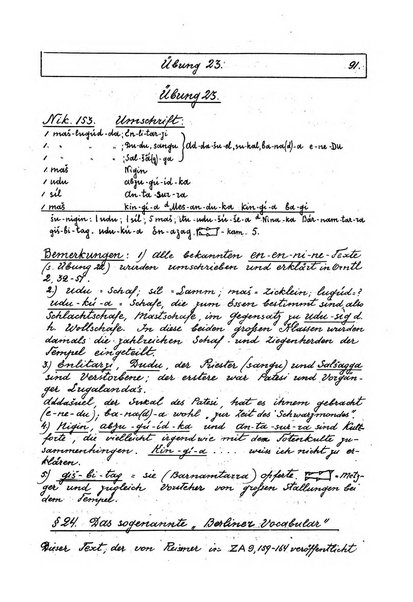 Übung 23. 91.
Übung 23.
Nik. 153. Umschrift:
1 maš-lugúd-da; En-li-tar-zi
1 " " " ; Du-du, sangu
1 " " " ; Šal-šà(g)-ga
Ad-da-šu-el, sukal, ba-na(d)-a e-ne-DU
1 maš Nigin
1 udu abzu-gú-id-ka
1 síl An-ta-sur-ra
1 maš kin-gi-a Mes-an-du-ka kin-gi-a ba-gi
šu-nigín: 1 udu; 1 síl; 5 maš; itu-udu-šú-še-a Nina-ka Bár-nam-tar-ra
giš-bi-tag. udu-kú-a Én-azag. -kam. 5.
Bemerkungen: 1) alle bekannten en-en-ni-ne-Texte
(s. Übung 22) wurden umschrieben und erklärt in Orntl
2, 32-51.
2) udu = Schaf, síl = Lamm; maš = Zicklein; lugúd=?
udu-kú-a = Schafe, die zum Essen bestimmt sind, also
Schlachtschafe, Mastschafe, im gegensatz zu udu-sig d.
h. Wollschafe. In diese beiden großen Klassen wurden
damals die zahlreichen Schaf- und Ziegenherden der
Tempel eingeteilt.
3) Enlitarzi, Dudu, der Priester (sangu) und Šalšagga
sind Verstorbene; der erstere war Patesi und Vorgän-
ger Lugalanda's.
Addašuel, der Sukal des Patesi, hat es ihnen gebracht
(e-ne-du), ba-na(d)-a wohl „zur Zeit des Schwarzmondes".
4) Nigin, abzu-gú-id-ka und an-ta-sur-ra sind Kult-
orte, die vielleicht irgendwie mit dem Totenkulte zu-
sammenhingen. Kin-gi-a .... weis ich nicht zu er-
klären.
5) giš-bi-tag = sie (Barnamtarra) opferte. = Metz-
ger und zugleich Vorsteher von großen Stallungen bei
dem Tempel.
§ 24. Das sogenannte „Berliner Vocabular"
Dieser Text, der von Reisner in ZA 9, 159-164 veröffentlicht